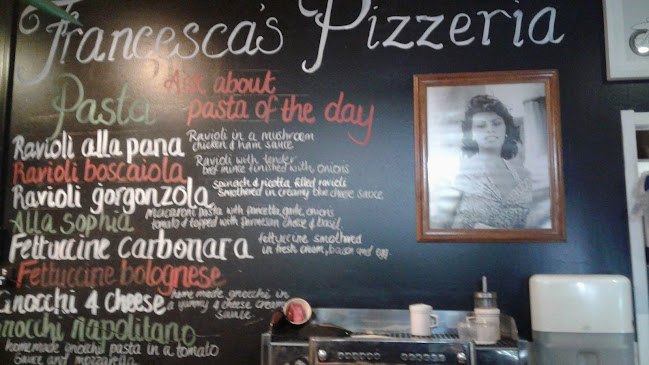 Francesca's Pizzeria
Pasta
Ask about
pasta of the day
Ravioli alla pana
Ravioli in a mushroom
chicken & ham sauce
Ravioli boscaiola
Ravioli with tender
beef mince finished with onions
Ravioli gorgonzola
spinach & ricotta filled ravioli
smothered in creamy blue cheese sauce
Alla sophia
macaroni pasta with pancetta, garlic, onions
tomato & topped with parmesan cheese & basil
Fettuccine carbonara
fettuccine smothered
in fresh cream, bacon and egg
Fettuccine bolognese
Gnocchi 4 cheese
home made gnocchi in
a yummy 4 cheese creamy
sauce
Gnocchi napolitano
home made gnocchi pasta in a tomato
sauce and mozzarella